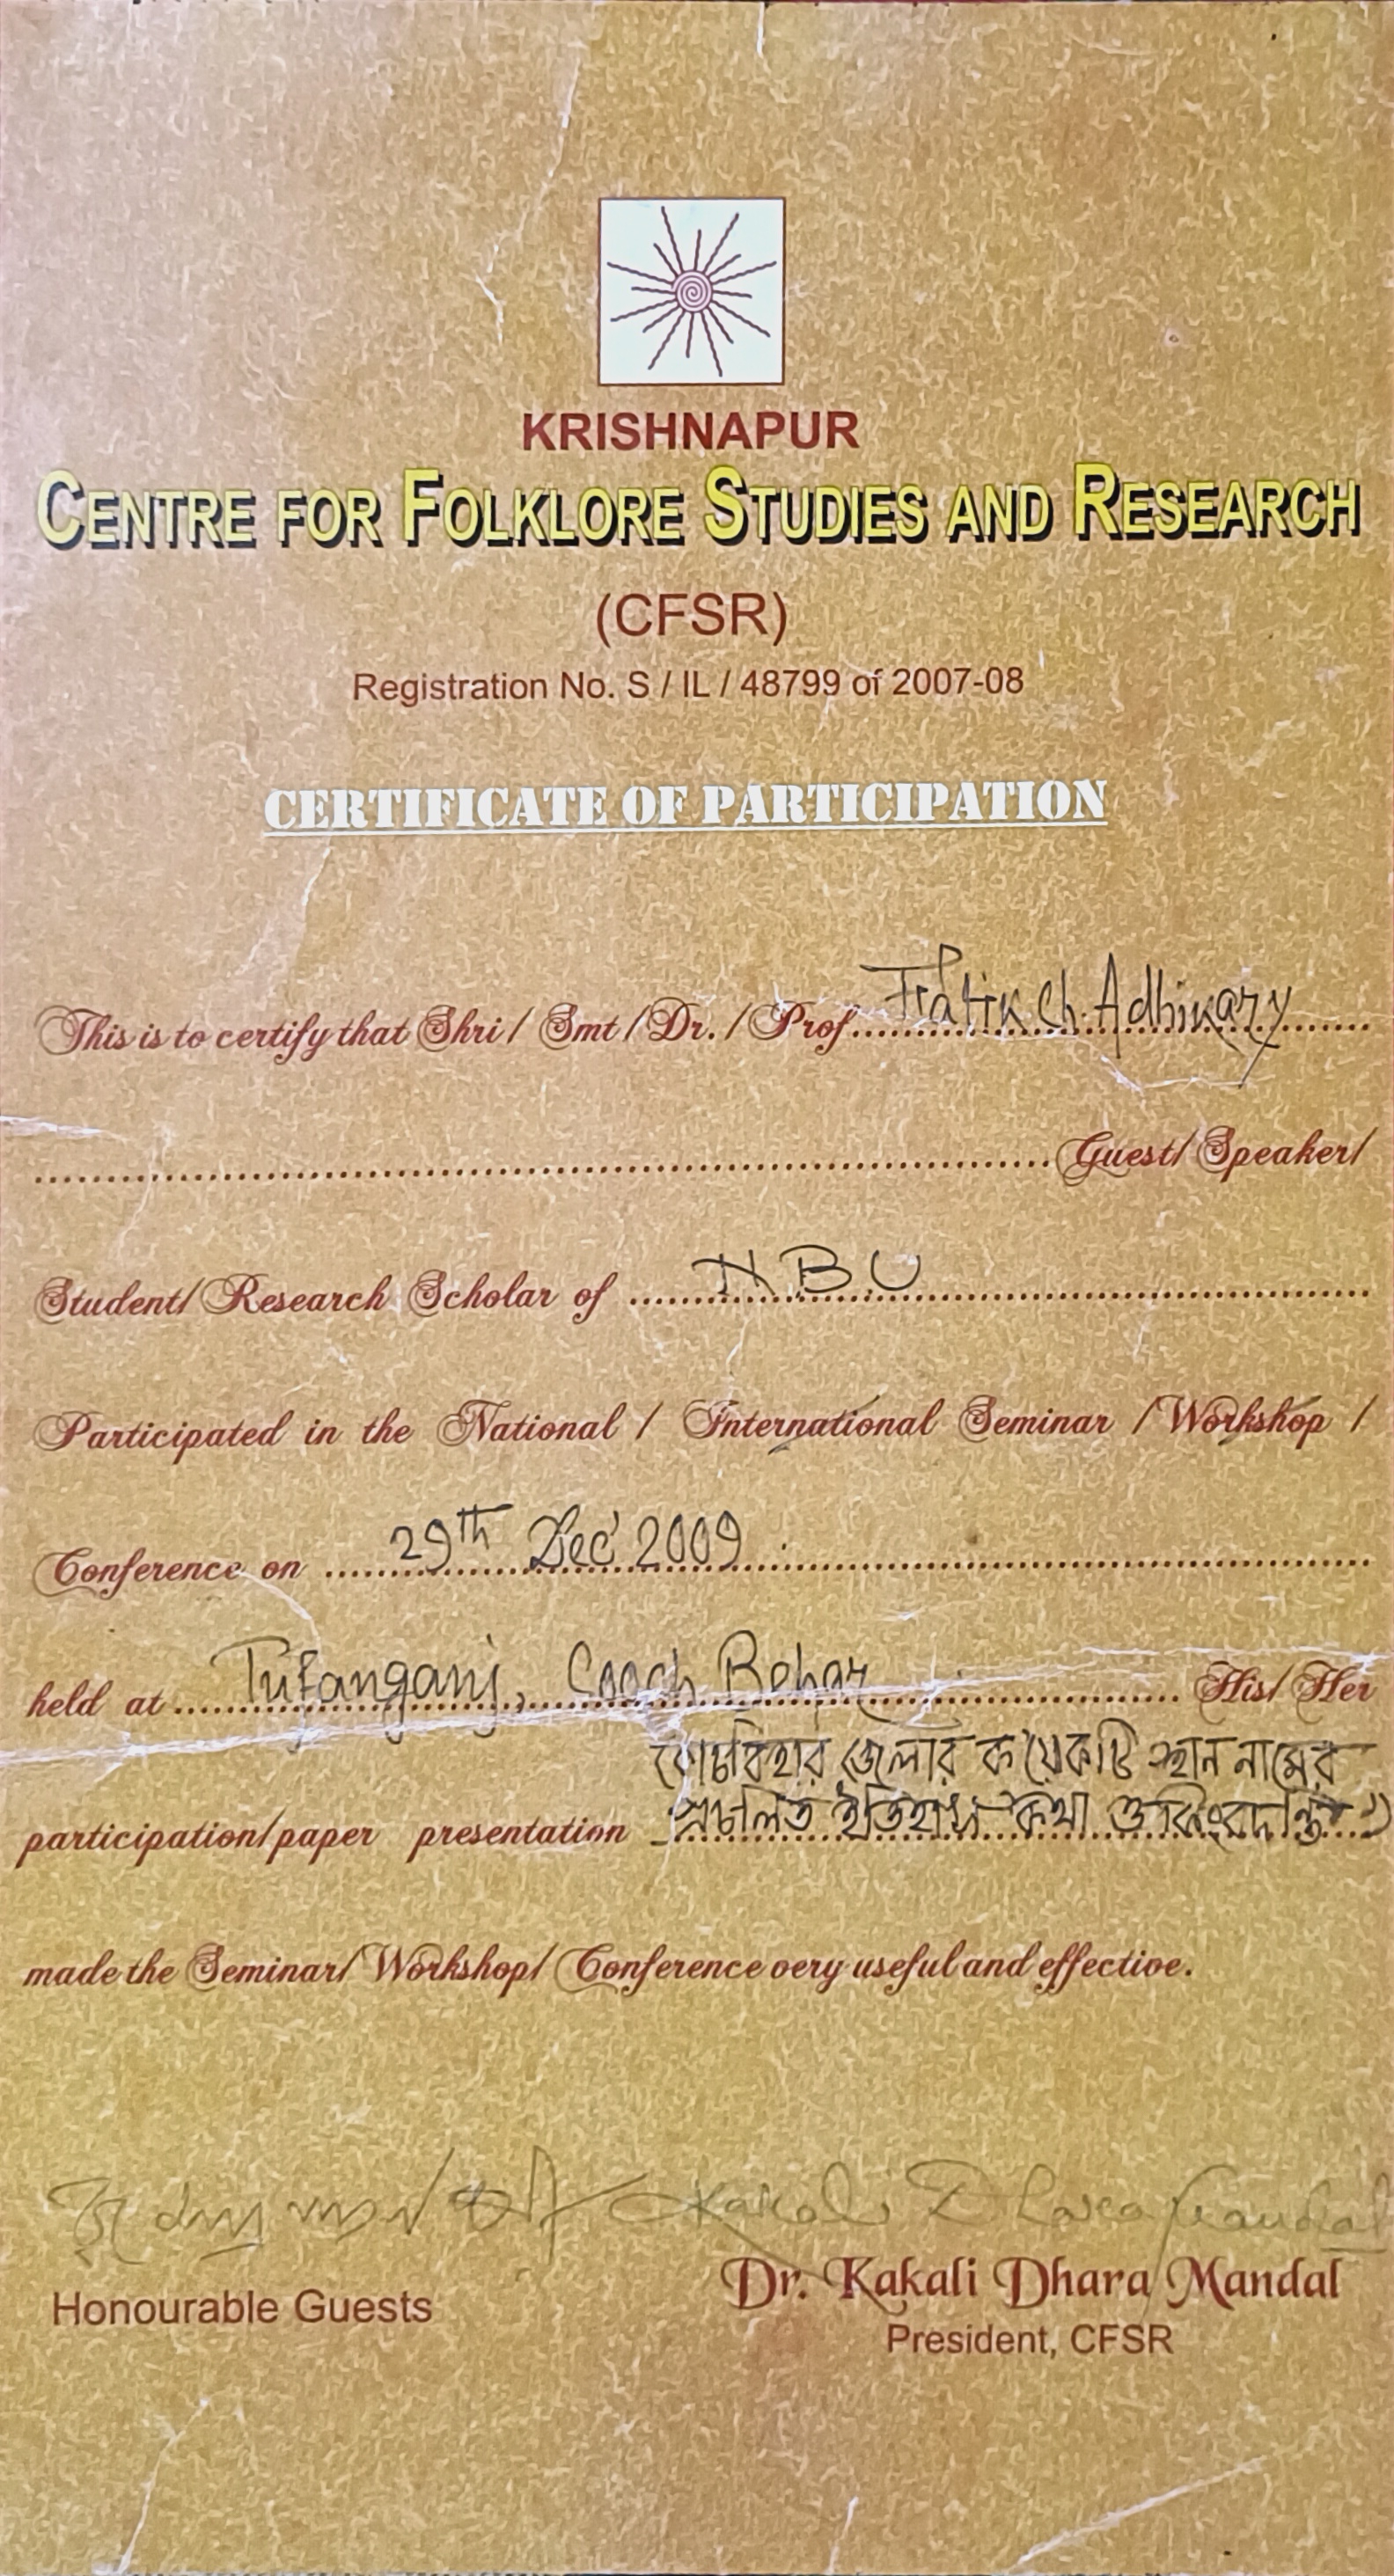 KRISHNAPUR
CENTRE FOR FOLKLORE STUDIES AND RESEARCH
(CFSR)
Registration No. S / IL / 48799 of 2007-08
CERTIFICATE OF PARTICIPATION
This is to certify that Shri / Smt / Dr. / Prof. Pratik Ch. Adhikary
Guest/ Speaker/
Student/ Research Scholar of N.B.U
Participated in the National / International Seminar / Workshop /
Conference on 29th Dec' 2009
held at Tufanganj, Cooch Behar His/ Her
কোচবিহার জেলার কয়েকটি স্থান নামের
participation/paper presentation প্রচলিত ইতিহাস কথা ও কিংবদন্তি
made the Seminar/ Workshop/ Conference very useful and effective.
Kakali Dhara Mandal
Honourable Guests
Dr. Kakali Dhara Mandal
President, CFSR